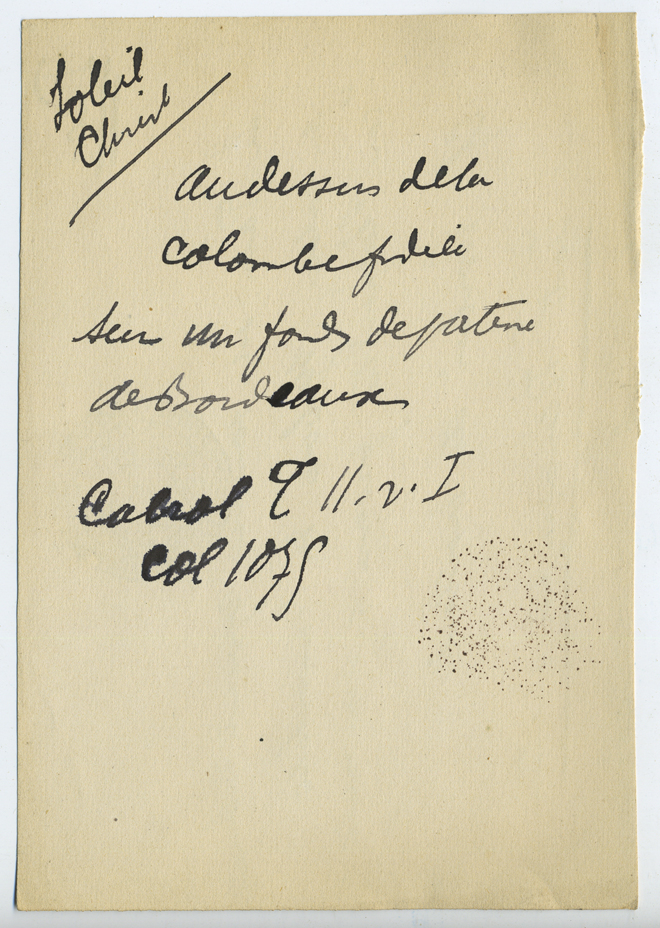 Soleil
Christ
au dessus de la
colombe fidèle
sur un fond de patène
de Bordeaux
Cabrol T II. v. I
Col 1075